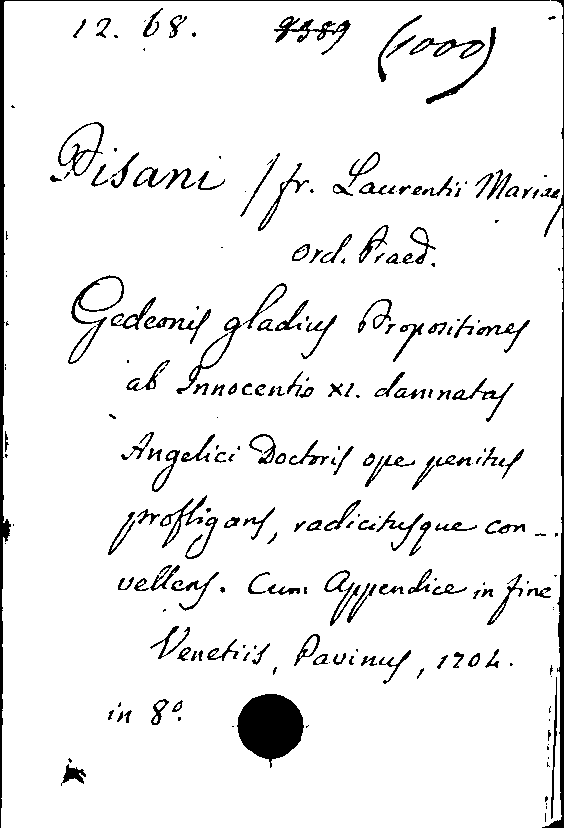 12. 68. 9389 (1000)
Pisani / fr. Laurentii Mariae
ord. Praed.
Gedeonis gladius Propositiones
ab Innocentio XI. damnatas
Angelici Doctoris ope penitus
profligans, radicitusque con-
vellens. Cum Appendice in fine
Venetiis, Pavinus, 1704.
in 8º.